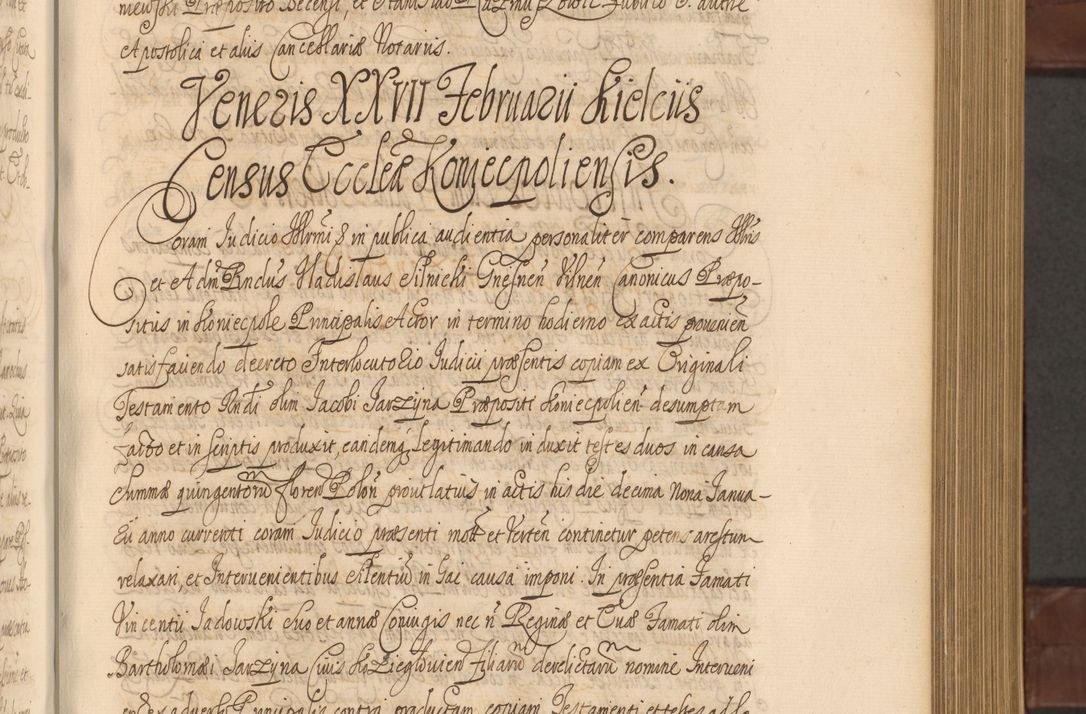 Apostolica et aliis Cancellariæ Notariis.
Veneris XXVII Februarii Kielciis
Census Eccleæ Koniecpoliensis.
Coram Judicio Illrmi & in publica audientia personaliter comparens Illris
et Adm Rndus Vladislaus Silnicki Gnesnen Vilnen Canonicus Præpo-
situs in Koniecpole Principalis Actor in termino hodierno ex actis provenien
satisfaciendo decreto Interlocutorio Judicii præsentis copiam ex Originali
Testamento Rndi olim Jacobi Jarzyna Præpositi Koniecpolien desumptam
facto et in scriptis produxit, eandemq legitimando induxit testes duos in causa
summæ quingentorum floren Polon prout latius in actis his die decima nona Janua-
rii anno currenti coram Judicio præsenti mot et verten continetur petens arestum
relaxari, et Intervenientibus silentium in hac causa imponi. In præsentia Famati
Vincentii Sadowski suo et annæ Coniugis nec n Reginæ et Evæ Famati olim
Bartholomæi Jarzyna Civis filiarum derelictarum nomine Interveni